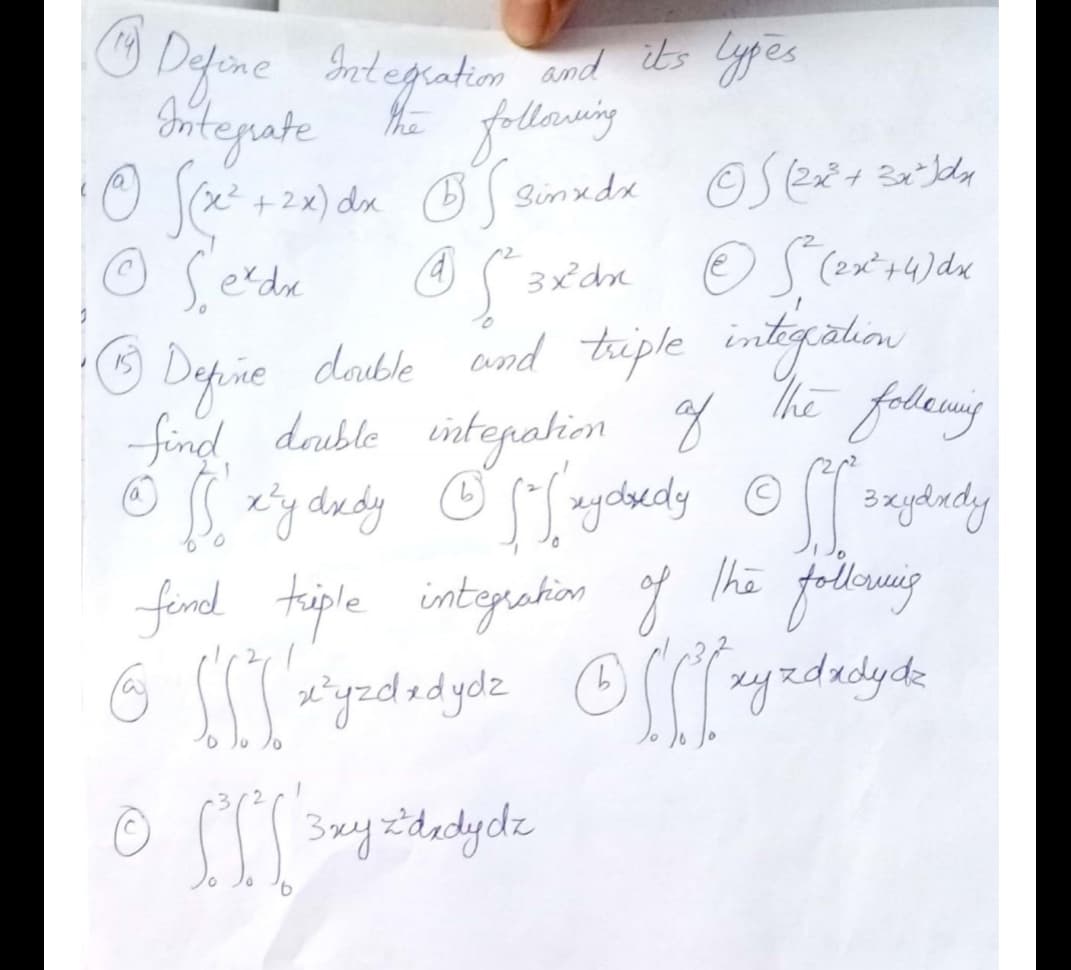 (14) Define Integration and its types
Integrate the following
(a) ∫(x² + 2x) dx (b) ∫ sinx dx (c) ∫(2x³ + 3x²)dx
(c) ∫₀¹ eˣdx (d) ∫₀² 3x²dx (e) ∫₁² (2x²+4)dx
(15) Define double and triple integration
find double integration of the following
(a) ∫₀²∫₀¹ x²y dxdy (b) ∫₁²∫₀¹ xydxdy (c) ∫₁²∫₀² 3xydxdy
find triple integration of the following
(a) ∫₀¹∫₀²∫₀¹ x²yzdxdydz (b) ∫₀¹∫₀³∫₀² xyzdxdydz
(c) ∫₀³∫₀²∫₀¹ 3xyz²dxdydz